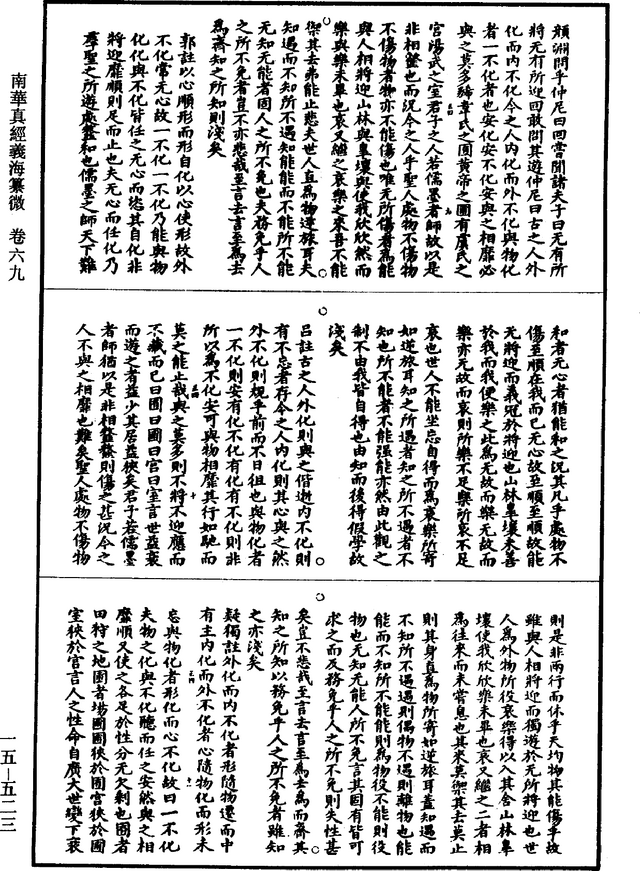 南華真經義海纂微 卷六九
一五—五二三
顏淵問乎仲尼曰回嘗聞諸夫子曰无有所
將无有所迎回敢問其遊仲尼曰古之人外
化而内不化今之人内化而外不化與物化
者一不化者也安化安不化安與之相靡必
與之莫多狶韋氏之囿黃帝之圃有虞氏之
宮湯武之室君子之人若儒墨者師故以是
非相𩐋也而況今之人乎聖人處物不傷物
不傷物者物亦不能傷也唯无所傷者爲能
與人相將迎山林與臯壤與使我欣欣然而
樂與樂未畢也哀又繼之哀樂之來吾不能
禦其去弗能止悲夫世人直爲物逆旅耳夫
知遇而不知所不遇知能能而不能所不能
无知无能者固人之所不免也夫務免乎人
之所不免者豈不亦悲哉至言去言至爲去
爲齊知之所知則淺矣
郭註以心順形而形自化以心使形故外
不化常无心故一不化一不化乃能與物
化化與不化皆任之无心而恣其自化非
將迎靡順則足而止也夫无心而任化乃
羣聖之所遊處𩐋和也儒墨之師天下難
和者无心者猶能和之況其凡乎處物不
傷至順在我而已无心故至順至順故能
无將迎而義冠於將迎也山林臯壤未善
於我而我便樂之此爲无故而樂无故而
樂亦无故而哀則所樂不足樂所哀不足
哀也世人不能坐忘自得而爲哀樂所寄
如逆旅耳知之所遇者知之所不遇者不
知也所不能者不能强能亦然由此觀之
制不由我皆自得也由知而後得假學故
淺矣
呂註古之人外化則與之偕逝内不化則
有不忘者存今之人内化則其心與之然
外不化則規乎前而不日徂也與物化者
一不化則安有化不化有化有不化則非
所以爲不化安可與物相靡其行如馳而
莫之能止哉與之莫多則不將不迎應而
不藏而已曰囿曰圃曰宮曰室言世益衰
而遊之者益少其居益狹矣君子若儒墨
者師猶以是非相𩐋𩐋則傷之甚況今之
人不與之相靡也難矣聖人處物不傷物
則是非兩行而休乎天均物其能傷乎故
雖與人相將迎而獨遊於无所將迎也世
人爲外物所役哀樂得以入其舍山林臯
壤使我欣欣樂未畢也哀又繼之二者相
爲往來而未嘗息也其來莫禦其去莫止
則其身直爲物所寄如逆旅耳蓋知遇而
不知所不遇遇則偶物不遇則離物也能
能而不知所不能能則爲物役不能則役
物也无知无能人所不免言其固有皆可
求之而反務免乎人之所不免則失性甚
矣豈不悲哉至言去言至爲去爲而齊其
知之所知以務免乎人之所不免者雖知
之亦淺矣
疑獨註外化而内不化者形隨物遷而中
有主内化而外不化者心隨物化而形未
忘與物化者形化而心不化故曰一不化
夫物之化與不化隨而任之安然與之相
靡順又使之各足於性分无欠剩也囿者
田狩之地圃者場圃圃狹於囿宮狹於圃
室狹於宮言人之性命自廣大世變下衰